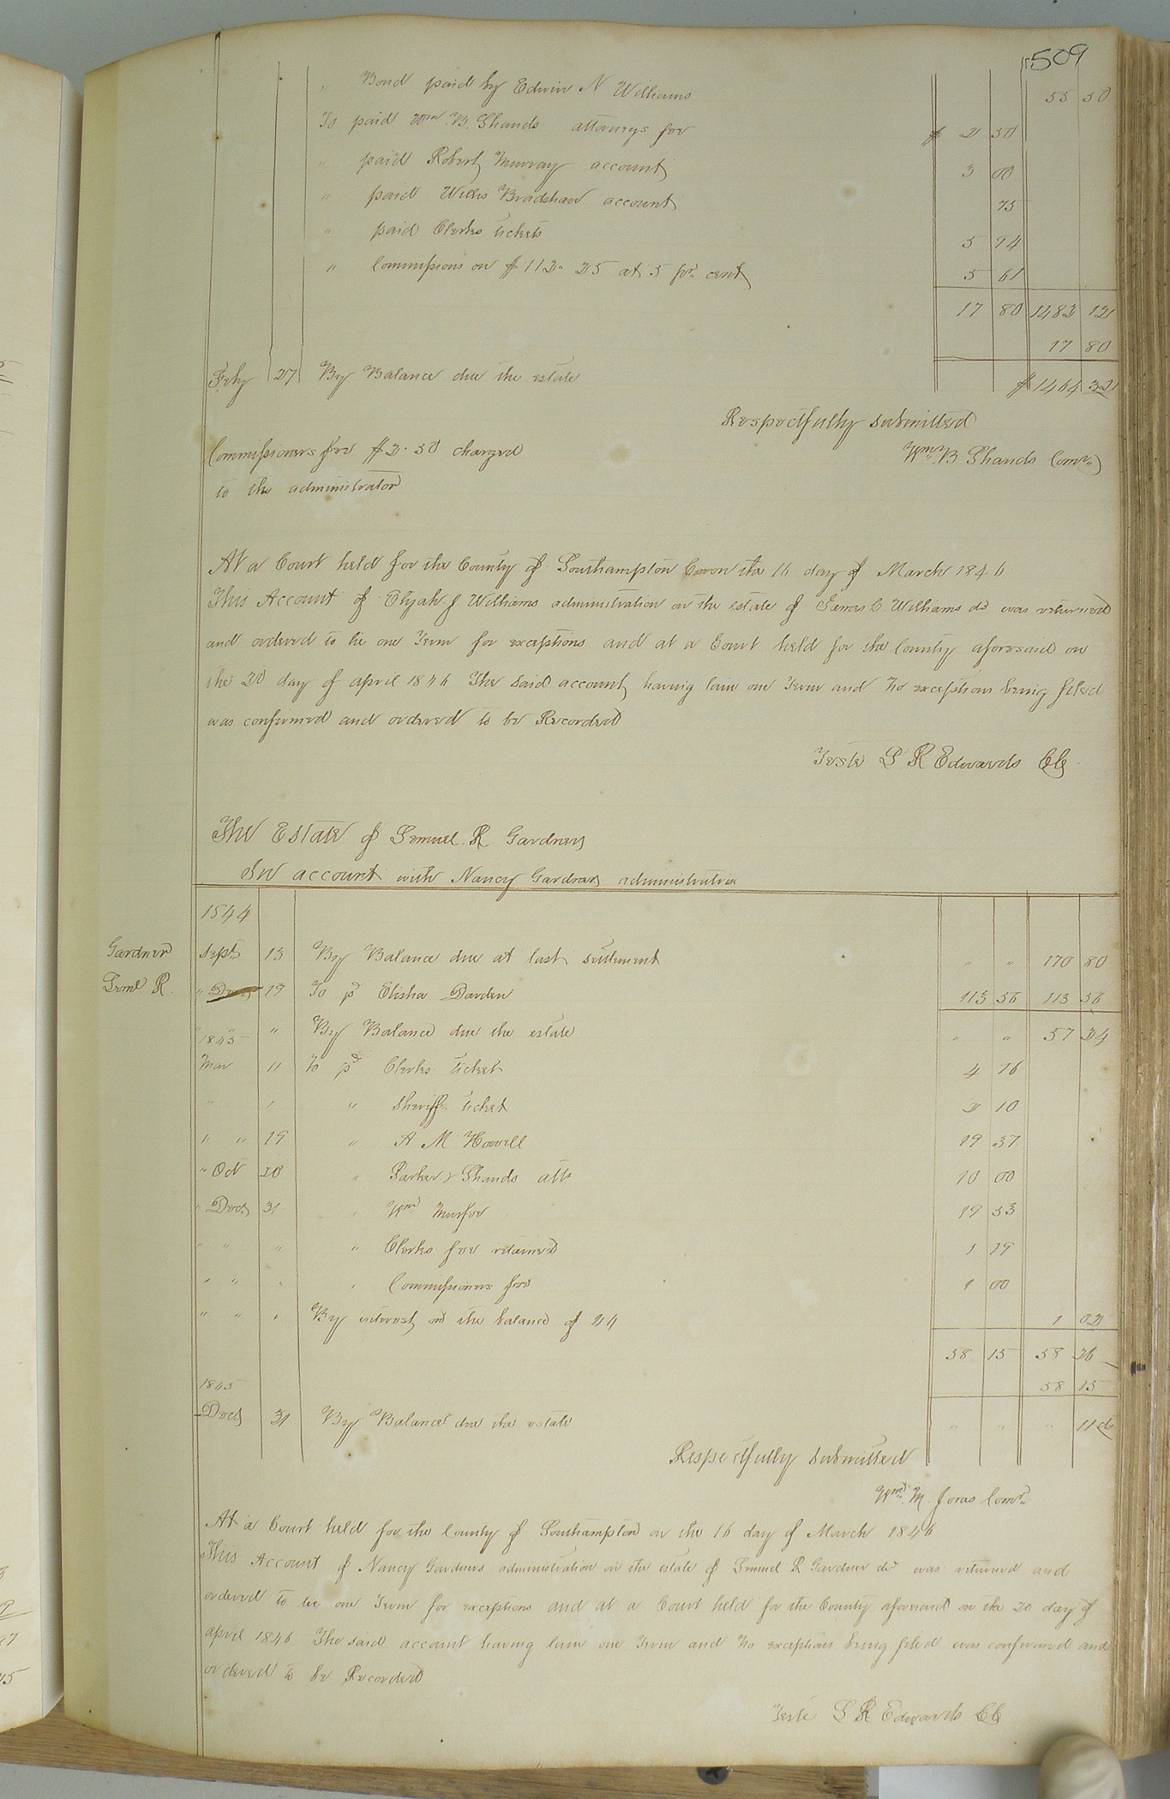 509
" Bond paid by Edwin N Williams 55 50
To paid Wm B. Shands attorneys fee $ 2 50
" paid Robert Murray account 3 00
" paid Willis Bradshaw account 75
" paid Clerks tickets 5 94
" Commissions on $112.25 at 5 pr cent 5 61
17 80 1482 12
17 80
Feby 27 By Balance due the estate $1464 32
Respectfully submitted
Wm B Shands Comr
Commissioners fee $2.50 charged
to the administrator
At a Court held for the County of Southampton on the 16 day of March 1846
This Account of Elijah J Williams administration on the estate of C. Williams dd was returned
and ordered to lie one Term for exceptions and at a Court held for the County aforesaid on
the 20 day of april 1846 The said account having lain one Term and no exceptions being filed
was confirmed and ordered to be Recorded
Teste L R Edwards CC
The Estate of Lemuel R Gardner
In account with Nancy Gardner administratrix
1844
Gardner
Leml R.
Sept 13 By Balance due at last settlement " " 170 80
" 19 To pd Elisha Darden 113 56 113 56
" " By Balance due the estate " " 57 24
1845
Mar 11 To pd Clerks ticket 4 16
" " " Sheriffs ticket 2 10
" " 19 " A M Howell 19 37
" Oct 20 " Parker & Shands atts 10 00
" Decr 31 " Wm 19 53
" " " " Clerks fee retained 1 99
" " " " Commissioners fee 1 00
" " " By interest on the balance of 24 1 02
58 15 58 26
1845 58 15
Decr 31 By Balance due the estate " " " 11c
Respectfully submitted
Wm M. Jones Comr
At a Court held for the County of Southampton on the 16 day of March 1846
This Account of Nancy Gardners administration on the estate of Lemuel R Gardner dd was returned and
ordered to lie one Term for exceptions and at a Court held for the County aforesaid on the 20 day of
april 1846 The said account having lain one Term and no exceptions being filed was confirmed and
ordered to be Recorded
Teste L R Edwards CC